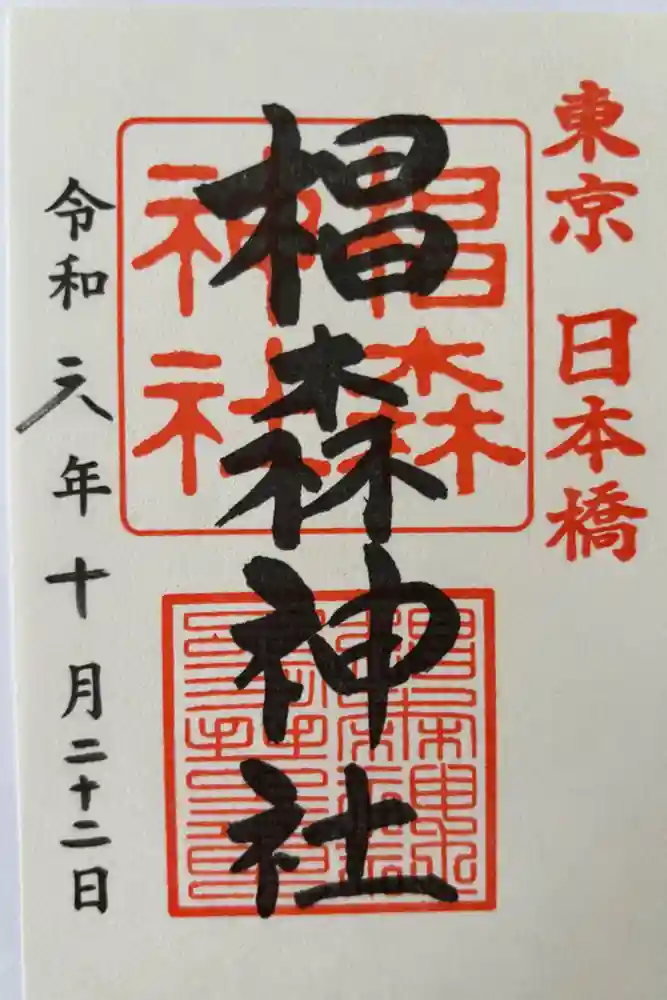 東京 日本橋
椙森神社
椙森
神社
令和六年十月二十二日